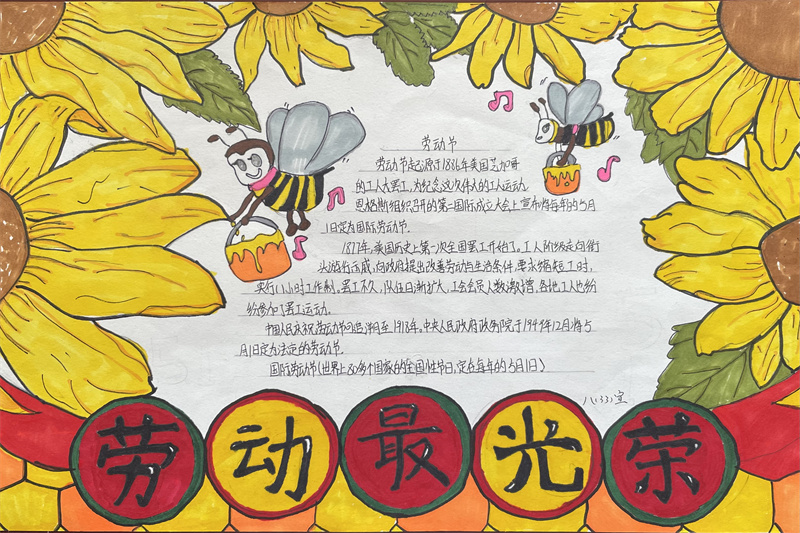 劳动节
劳动节起源于1886年美国芝加哥
的工人大罢工,为纪念这次伟大的工人运动,
恩格斯组织召开的第一国际成立大会上宣布将每年的5月
1日定为国际劳动节.
1877年,美国历史上第一次全国罢工开始了,工人阶级走向街
头游行示威,向政府提出改善劳动与生活条件,要求缩短工时,
实行八小时工作制,罢工不久,队伍日渐扩大,工会会员人数激增,各地工人也纷
纷参加了罢工运动.
中国人民庆祝劳动节可追溯至1918年,中央人民政府政务院于1949年12月将5
月1日定为法定的劳动节.
国际劳动节(世界上80多个国家的全国性节日,定在每年的5月1日)
劳动最光荣